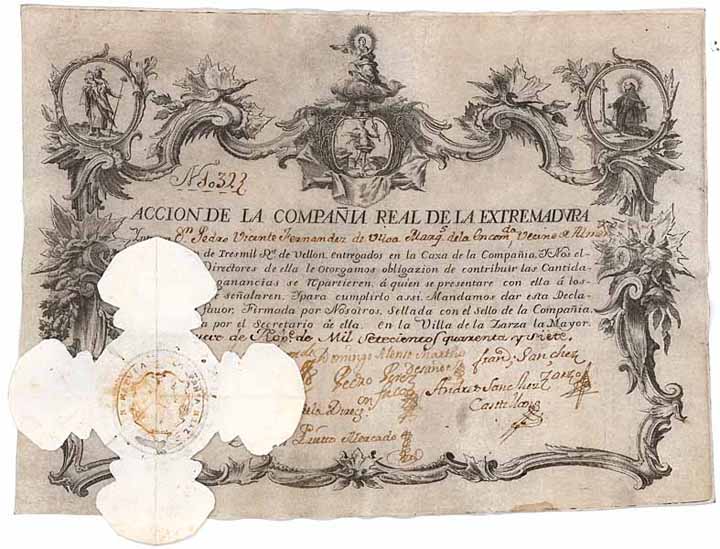 Nº 323
ACCION DE LA COMPAÑIA REAL DE LA EXTREMADVRA
Dⁿ Pedro Vicente Fernandez de Ulloa Marq.s de la Encom.da Vecino
de Tresmil R.s de Vellon, entregados en la Caxa de la Compañia, Y Nos el
Directores de ella le Otorgamos obligazion de contribuir las Cantida
ganancias se Repartieren, á quien se presentare con ella á los
e señalaren, Ypara cumplirlo assi, Mandamos dar esta Decla
favor, Firmada por Nosotros, Sellada con el Sello de la Compañia
a por el Secretario de ella, en la Villa de la Zarza la Mayor,
de Mil Setecientos quarenta y siete.
Domingo
Fran.co Sanchez
Pedro
Andres Sanchez
Castellano
Mercado